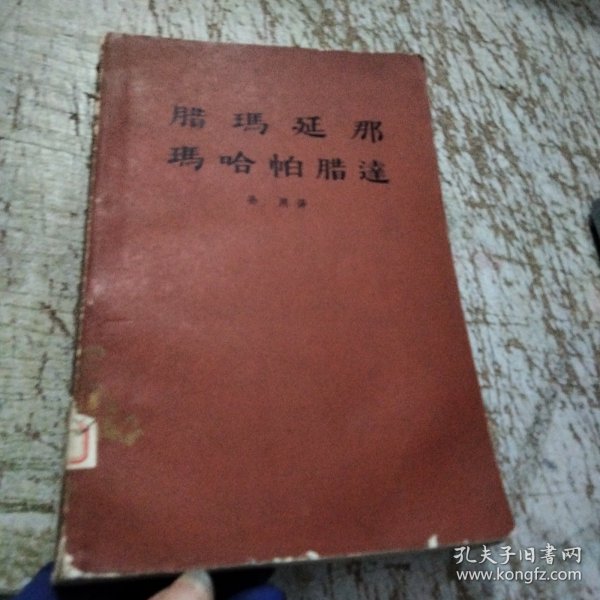 腊瑪延那
瑪哈帕腊達
孫用譯
孔夫子旧書网
www.kongfz.com